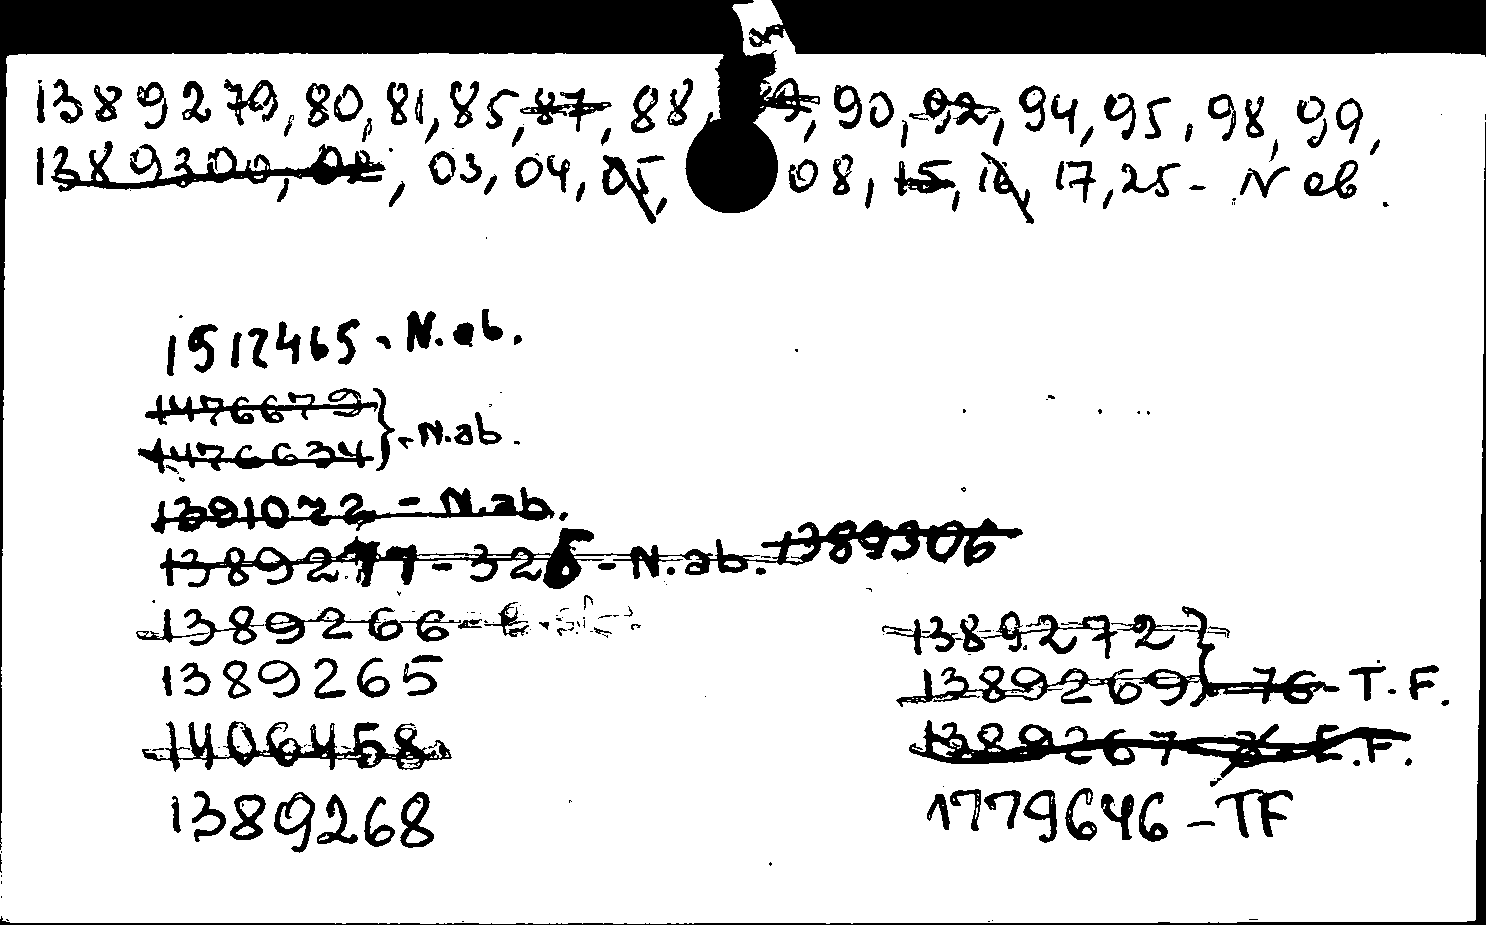 1389279, 80, 81, 85, 87, 88, 89, 90, 92, 94, 95, 98, 99,
1389300, 02, 03, 04, 05, 08, 15, 16, 17, 25 - N ab.
1512465 - N.ab.
1476679
1476634 } - N.ab.
1391022 - N.ab.
1389277 - 326 - N.ab. 1389306
1389266 -
1389265
1406458
1389268
1389272
1389269 } - 76 - T.F.
1389267 - E.F.
1779646 - TF